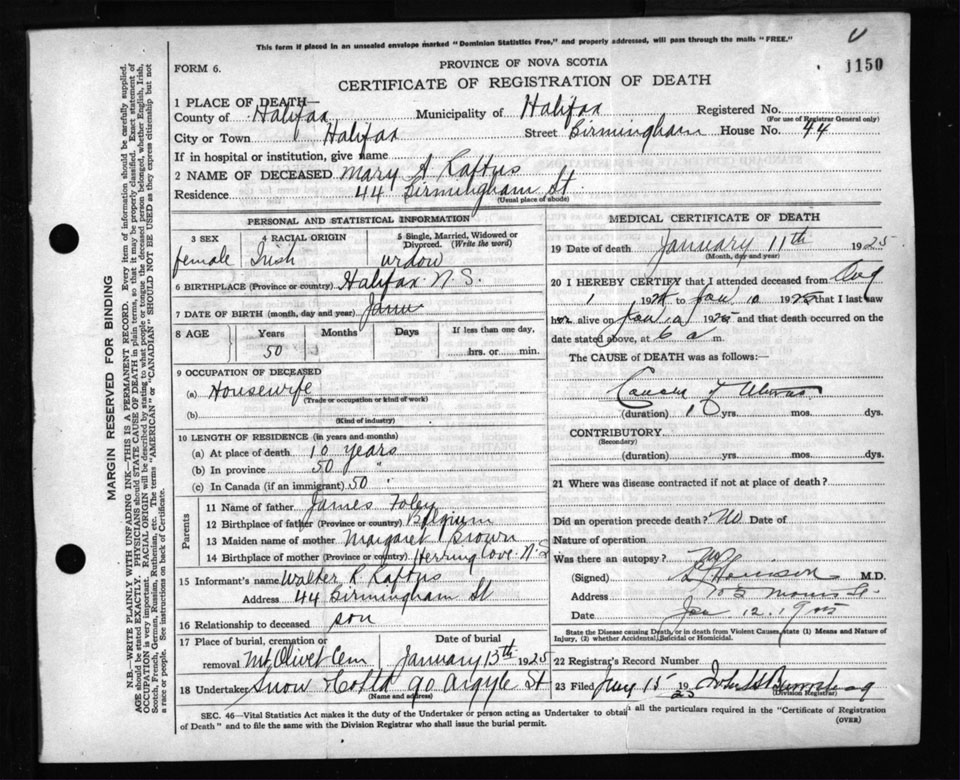 This form if placed in an unsealed envelope marked "Dominion Statistics Free," and properly addressed, will pass through the mails "FREE."
FORM 6.
PROVINCE OF NOVA SCOTIA
1150
CERTIFICATE OF REGISTRATION OF DEATH
1 PLACE OF DEATH—
County of Halifax Municipality of Halifax Registered No.
(For use of Registrar General only)
City or Town Halifax Street Birmingham House No. 44
If in hospital or institution, give name
2 NAME OF DECEASED Mary A Raftus
Residence 44 Birmingham St
(Usual place of abode)
PERSONAL AND STATISTICAL INFORMATION
3 SEX 4 RACIAL ORIGIN 5 Single, Married, Widowed or Divorced. (Write the word)
female Irish widow
6 BIRTHPLACE (Province or country) Halifax N.S.
7 DATE OF BIRTH (month, day and year)
8 AGE Years Months Days If less than one day,
50 hrs. or min.
9 OCCUPATION OF DECEASED
(a) Housewife
(Trade or occupation or kind of work)
(b)
(Kind of industry)
10 LENGTH OF RESIDENCE (in years and months)
(a) At place of death 10 years
(b) In province 50 "
(c) In Canada (if an immigrant) 50 "
Parents
11 Name of father James Foley
12 Birthplace of father (Province or country) Belgium
13 Maiden name of mother Margaret Brown
14 Birthplace of mother (Province or country) Herring Cove N.S
15 Informant's name Walter R Raftus
Address 44 Birmingham St
16 Relationship to deceased son
17 Place of burial, cremation or removal Mt Olivet Cem Date of burial January 13th 1925
18 Undertaker Snow & Co Ltd 90 Argyle St
(Name and address)
MEDICAL CERTIFICATE OF DEATH
19 Date of death January 11th 1925
(Month, day and year)
20 I HEREBY CERTIFY that I attended deceased from Aug
1 1924 to Jan 10 1925 that I last saw
her alive on Jan 10 1925 and that death occurred on the
date stated above, at 6 a m.
The CAUSE of DEATH was as follows:—
(duration) yrs. mos. dys.
CONTRIBUTORY
(Secondary)
(duration) yrs. mos. dys.
21 Where was disease contracted if not at place of death?
Did an operation precede death? No Date of
Nature of operation
Was there an autopsy? No
(Signed) M.D.
Address Morris St.
Date Jan 12. 1925
State the Disease causing Death, or in death from Violent Causes, state (1) Means and Nature of Injury, (2) whether Accidental, Suicidal or Homicidal.
22 Registrar's Record Number
23 Filed 15 1925
(Division Registrar)
SEC. 46—Vital Statistics Act makes it the duty of the Undertaker or person acting as Undertaker to obtain all the particulars required in the "Certificate of Registration
of Death" and to file the same with the Division Registrar who shall issue the burial permit. (OVER)
MARGIN RESERVED FOR BINDING
N.B.—WRITE PLAINLY WITH UNFADING INK—THIS IS A PERMANENT RECORD. Every item of information should be carefully supplied.
AGE should be stated EXACTLY. PHYSICIANS should STATE CAUSE OF DEATH in plain terms, so that it may be properly classified. Exact statement of
OCCUPATION is very important. RACIAL ORIGIN will be described by stating to what people or tongue the deceased person belonged, whether English, Irish,
Scotch, French, German, Russian, Ruthenian, etc. The terms "AMERICAN" or "CANADIAN" SHOULD NOT BE USED as they express citizenship but not
a race or people. See instructions on back of Certificate.